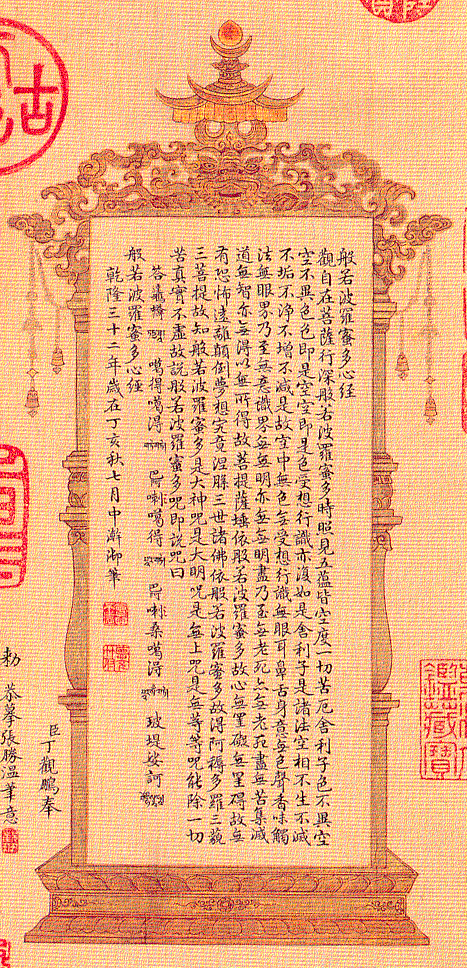 般若波羅蜜多心經
觀自在菩薩行深般若波羅蜜多時照見五蘊皆空度一切苦厄舍利子色不異空
空不異色色即是空空即是色受想行識亦復如是舍利子是諸法空相不生不滅
不垢不淨不增不減是故空中無色無受想行識無眼耳鼻舌身意無色聲香味觸
法無眼界乃至無意識界無無明亦無無明盡乃至無老死亦無老死盡無苦集滅
道無智亦無得以無所得故菩提薩埵依般若波羅蜜多故心無罣礙無罣碍故無
有恐怖遠離顛倒夢想究竟涅槃三世諸佛依般若波羅蜜多故得阿耨多羅三藐
三菩提故知般若波羅蜜多是大神咒是大明咒是無上咒是無等等咒能除一切
苦真實不虛故說般若波羅蜜多咒即說咒曰
噶得噶得 喇噶得 喇桑噶得 玻堤娑訶
般若波羅蜜多心經
乾隆三十二年歲在丁亥秋七月中澣御筆
臣丁觀鵬奉
勅恭摹張勝溫筆意
古
鑑藏寶